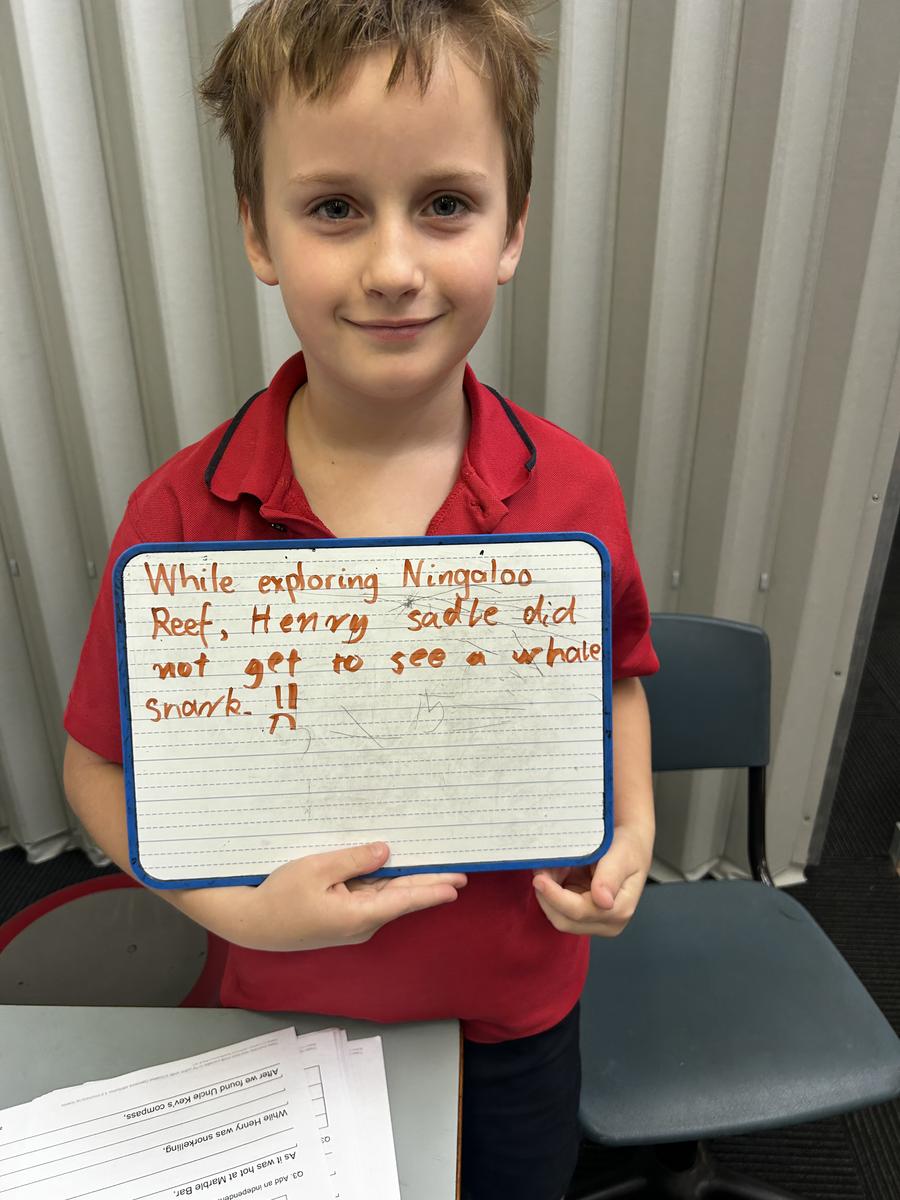 While exploring Ningaloo
Reef, Henry sadle did
not get to see a whale
snark.
After we found Uncle Kev's compass,
While Henry was snorkelling,
As it was hot at Marble Bar,
Q3. Add an independent